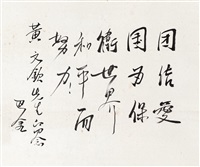 团结爱
国为保
衛世界
和平而
努力
黄文钦先生留念